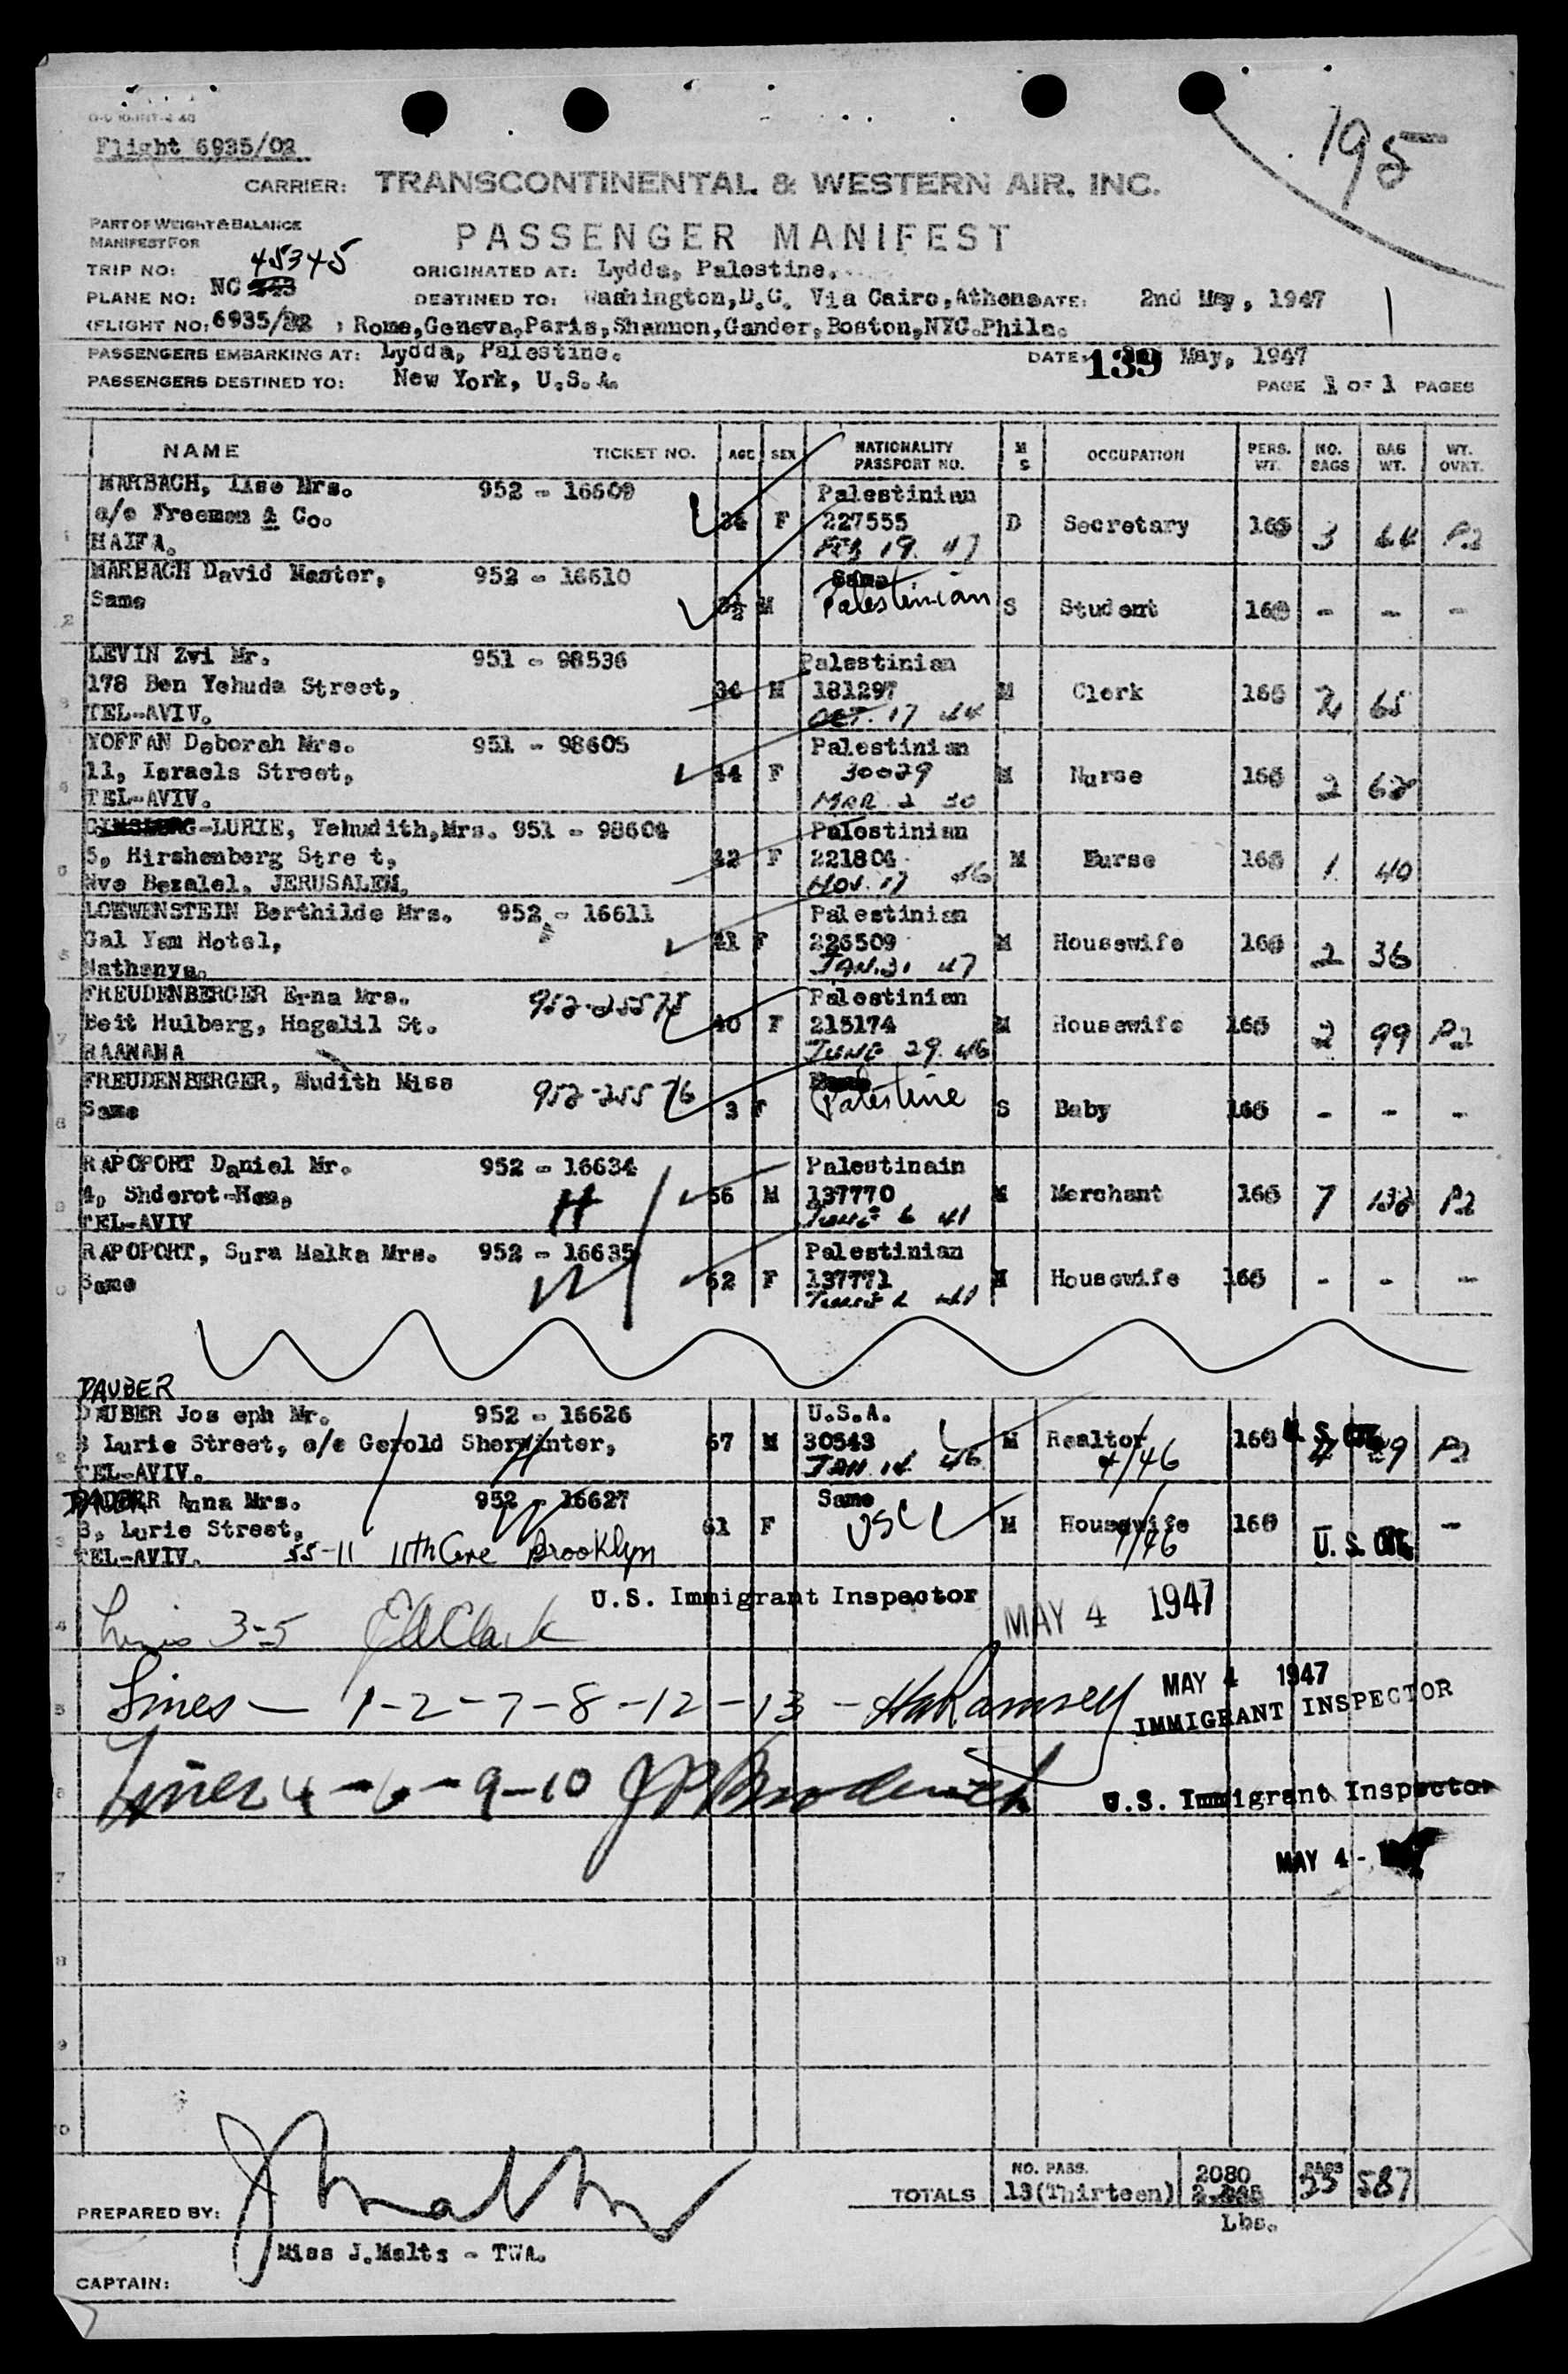 Flight 6935/02
195
CARRIER: TRANSCONTINENTAL & WESTERN AIR, INC.
PART OF WEIGHT & BALANCE
MANIFEST FOR
PASSENGER MANIFEST
TRIP NO: 45345
ORIGINATED AT: Lydda, Palestine.
PLANE NO: NC
DESTINED TO: Washington,D.C. Via Cairo,Athens DATE: 2nd May, 1947
(FLIGHT NO: 6935/02 ) Rome,Geneva,Paris,Shannon,Gander,Boston,NYC.Phila.
PASSENGERS EMBARKING AT: Lydda, Palestine. DATE: 139 May, 1947
PASSENGERS DESTINED TO: New York, U.S.A. PAGE 1 OF 1 PAGES
NAME TICKET NO. AGE SEX NATIONALITY PASSPORT NO. M S OCCUPATION PERS. WT. NO. BAGS BAG WT. WT. OVRT.
MARBACH, Ilse Mrs. 952 - 16609 Palestinian
c/o Freeman & Co. F 227555 D Secretary 3 44 P2
HAIFA. FEB 19. 47
MARBACH David Master, 952 - 16610 Same
Same M Palestinian S Student - - -
LEVIN Zvi Mr. 951 - 98536 Palestinian
178 Ben Yehuda Street, 34 M 181297 M Clerk 2 65
TEL-AVIV. OCT. 17 44
YOFFAN Deborah Mrs. 951 - 98605 Palestinian
11, Israels Street, 44 F 30029 M Nurse 2 62
TEL-AVIV. MAR. 2 30
-LURIE, Yehudith,Mrs. 951 - 98604 Palestinian
5, Hirshenberg Stre t, F 221804 M Nurse 1 40
Nve Bezalel, JERUSALEM. NOV. 17 46
LOEWENSTEIN Berthilde Mrs. 952 - 16611 Palestinian
Gal Yam Hotel, F 226509 M Housewife 2 36
Nathanya. JAN. 31 47
FREUDENBERGER Erna Mrs. 952-25575 Palestinian
Beit Hulberg, Hagalil St. 40 F 215174 M Housewife 2 99 P2
RAANANA JUNE 29. 46
FREUDENBERGER, Judith Miss 952-25576
Same 3 F Palestine S Baby - - -
RAPOPORT Daniel Mr. 952 - 16634 Palestinain
4, Shderot-Hen, 56 M 137770 M Merchant 7 132 P2
TEL-AVIV H JUNE 6 41
RAPOPORT, Sura Malka Mrs. 952 - 16635 Palestinian
Same W 52 F 137771 M Housewife - - -
DAUBER
DAUBER Jos eph Mr. 952 - 16626 U.S.A.
3 Lurie Street, c/o Gerold Sherwinter, H 67 M 30543 M Realtor P2
TEL-AVIV. JAN. 14 46 4/46
DAUBER Anna Mrs. 952 - 16627 Same
3, Lurie Street, W 61 F USC M Housewife -
TEL-AVIV. 55-11 11th Ave Brooklyn 4/46 U. S. CIT.
U.S. Immigrant Inspector MAY 4 1947
Lines 3-5 E A Clark
MAY 4 1947
Lines — 1-2-7-8-12-13 - Ramsey IMMIGRANT INSPECTOR
Lines 4-6-9-10
U.S. Immigrant Inspector
MAY 4 -
NO. PASS. 2080 BAGS
TOTALS 13(Thirteen) 587
Lbs.
PREPARED BY:
Miss J.Malts - TWA.
CAPTAIN: